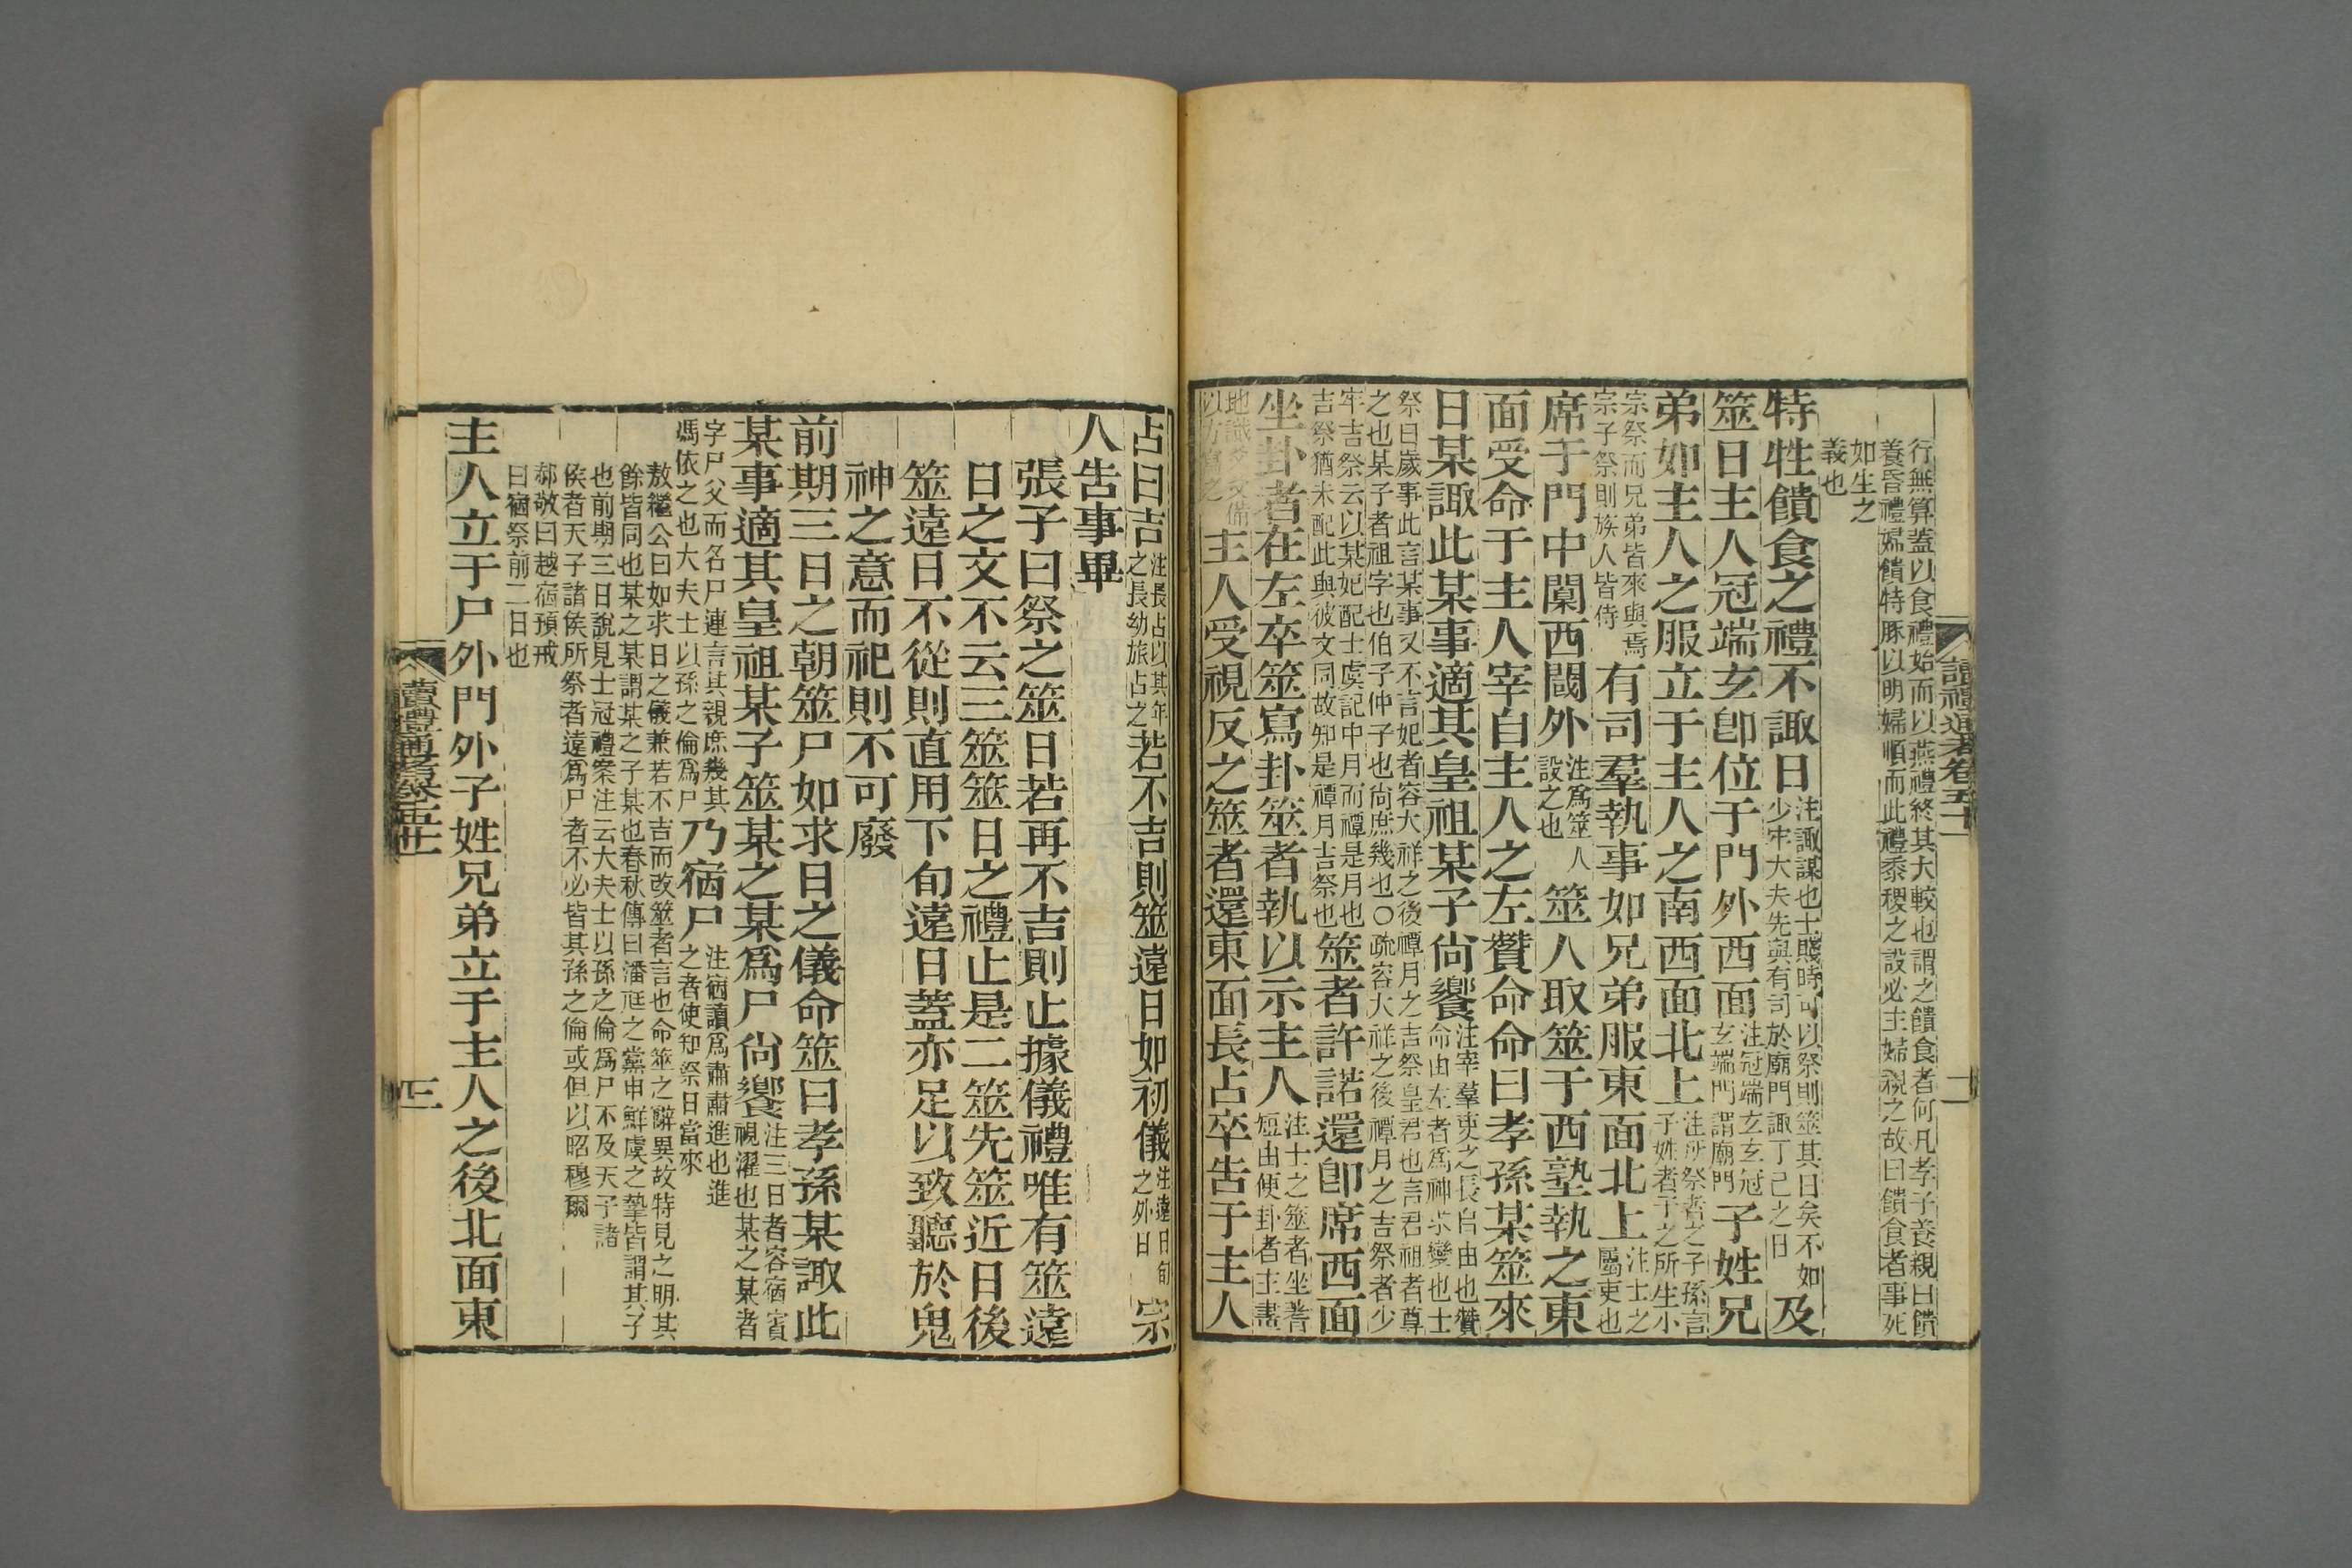 讀禮通考卷五十一
二
行無算蓋以食禮始而以燕禮終其大較也謂之饋食者何凡孝子養親曰饋
養昏禮婦饋特豚以明婦順而此禮黍稷之設必主婦親之故曰饋食者事死
如生之
義也
特牲饋食之禮不諏日注諏謀也士賤時可以祭則筮其日矣不如少牢大夫先與有司於廟門諏丁己之日及
筮日主人冠端玄即位于門外西面注冠端玄玄冠玄端門謂廟門子姓兄
弟如主人之服立于主人之南西面北上注所祭者之子孫言子姓者子之所生小
宗祭而兄弟皆來與焉宗子祭則族人皆侍有司羣執事如兄弟服東面北上注士之屬吏也
席于門中闑西閾外注爲筮人設之也筮人取筮于西塾執之東
面受命于主人宰自主人之左贊命命曰孝孫某筮來
日某諏此某事適其皇祖某子尙饗注宰羣吏之長自由也贊命由左者爲神求變也士
祭曰歲事此言某事又不言妃者容大祥之後禫月之吉祭皇君也言君祖者尊
之也某子者祖字也伯子仲子也尙庶幾也○疏容大祥之後禫月之吉祭者少
牢吉祭云以某妃配士虞記中月而禫是月也吉祭猶未配此與彼文同故知是禫月吉祭也筮者許諾還即席西面
坐卦者在左卒筮寫卦筮者執以示主人注士之筮者坐蓍短由便卦者主畫
地識爻爻備以方寫之主人受視反之筮者還東面長占卒告于主人
占曰吉注長占以其年之長幼旅占之若不吉則筮遠日如初儀注遠日旬之外日宗
人告事畢
張子曰祭之筮日若再不吉則止據儀禮唯有筮遠
日之文不云三筮筮日之禮止是二筮先筮近日後
筮遠日不從則直用下旬遠日蓋亦足以致聽於鬼
神之意而祀則不可廢
前期三日之朝筮尸如求日之儀命筮曰孝孫某諏此
某事適其皇祖某子筮某之某爲尸尙饗注三日者容宿賓視濯也某之某者
字尸父而名尸連言其親庶幾其馮依之也大夫士以孫之倫爲尸乃宿尸注宿讀爲肅肅進也進之者使知祭日當來
敖繼公曰如求日之儀兼若不吉而改筮者言也命筮之辭異故特見之明其
餘皆同也某之某謂某之子某也春秋傳曰潘尫之黨申鮮虞之摯皆謂其子
也前期三日說見士冠禮案注云大夫士以孫之倫爲尸不及天子諸
侯者天子諸侯所祭者遠爲尸者不必皆其孫之倫或但以昭穆爾
郝敬曰越宿預戒
曰宿祭前二日也
主人立于尸外門外子姓兄弟立于主人之後北面東
讀禮通考卷五十一
三